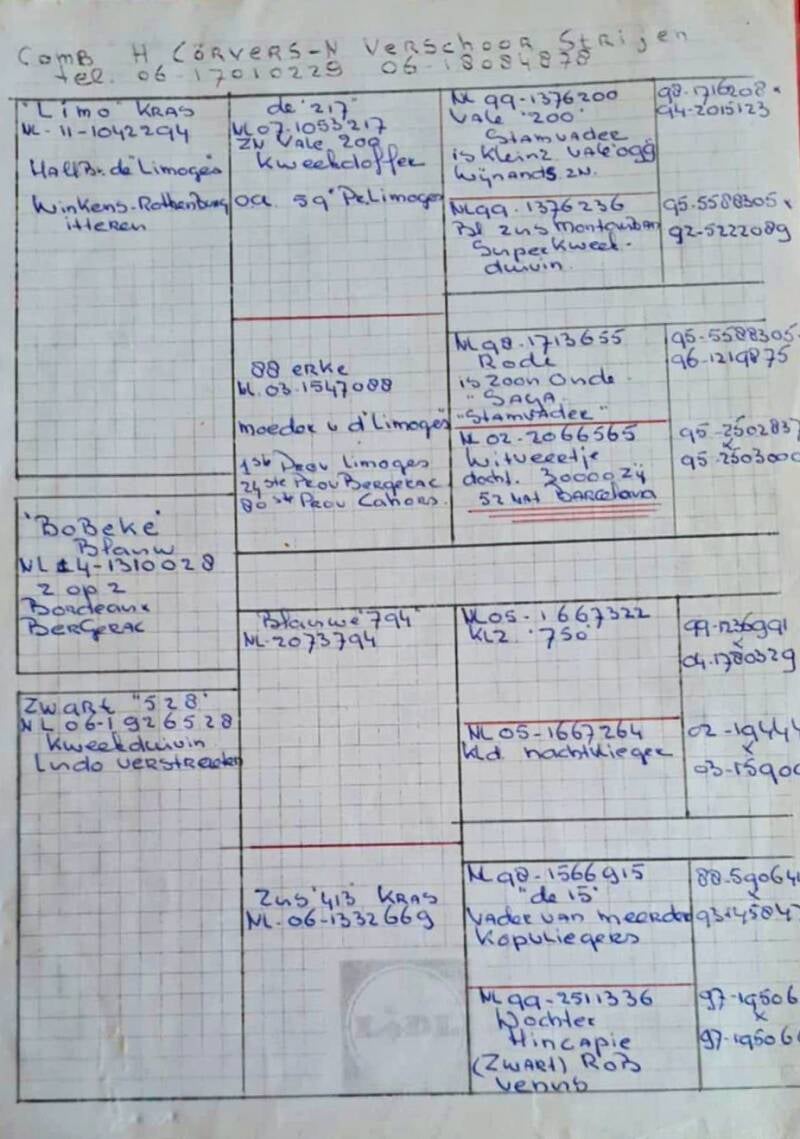 Comb H Corvers-N Verschoor Strijen
tel. 06-17010229 06-18084878
"Limo" KRAS
NL-11-1042294
Half Br. de "Limoges"
Winkens-Rothenburg
itteren
de "217"
NL07-1053217
ZN Vale 200
Kweekdoffer
oa 59e Pr. Limoges
NL99-1376200
Vale "200"
Stamvader
is kleinz vale 099
Wijnands ZN.
98-1716208 x
94-2015123
NL99.1376236
Bl zus Montauban
Superkweek-
duivin.
95-5588305 x
92-5222089
88 erke
NL.03-1547088
moeder v d "Limoges"
1ste Prov Limoges
24ste Prov Bergerac
80ste Prov Cahors.
NL98-1713655
Rode
is Zoon Oude
"SAGA
"Stamvader"
95-5588305-
96-1219875
NL 02-2066565
Witveertje
docht.
52 NAT Barcelona
95-2502837
x
95-2503000
"BoBeke"
Blauw
NL 14-1310028
2 op 2
Bordeaux
Bergerac
Blauwe "794"
NL-2073794
NL05-1667322
KLZ "750"
99-1236991
x
04.1780329
NL05-1667264
kld nachtvlieger
02-19444
x
03-15900
Zwart "528"
NL 06-1926528
Kweekduivin
Ludo Verstreken
Zus "413 KRAS
NL-06-1332669
NL98-1566915
"de 15"
Vader van meerder
Kopvliegers
88-590641
x
93-145847
NL99-2511336
Dochter
Hincapie
(Zwart) Rob
Venus
97-19506
x
97-195066
LIDL